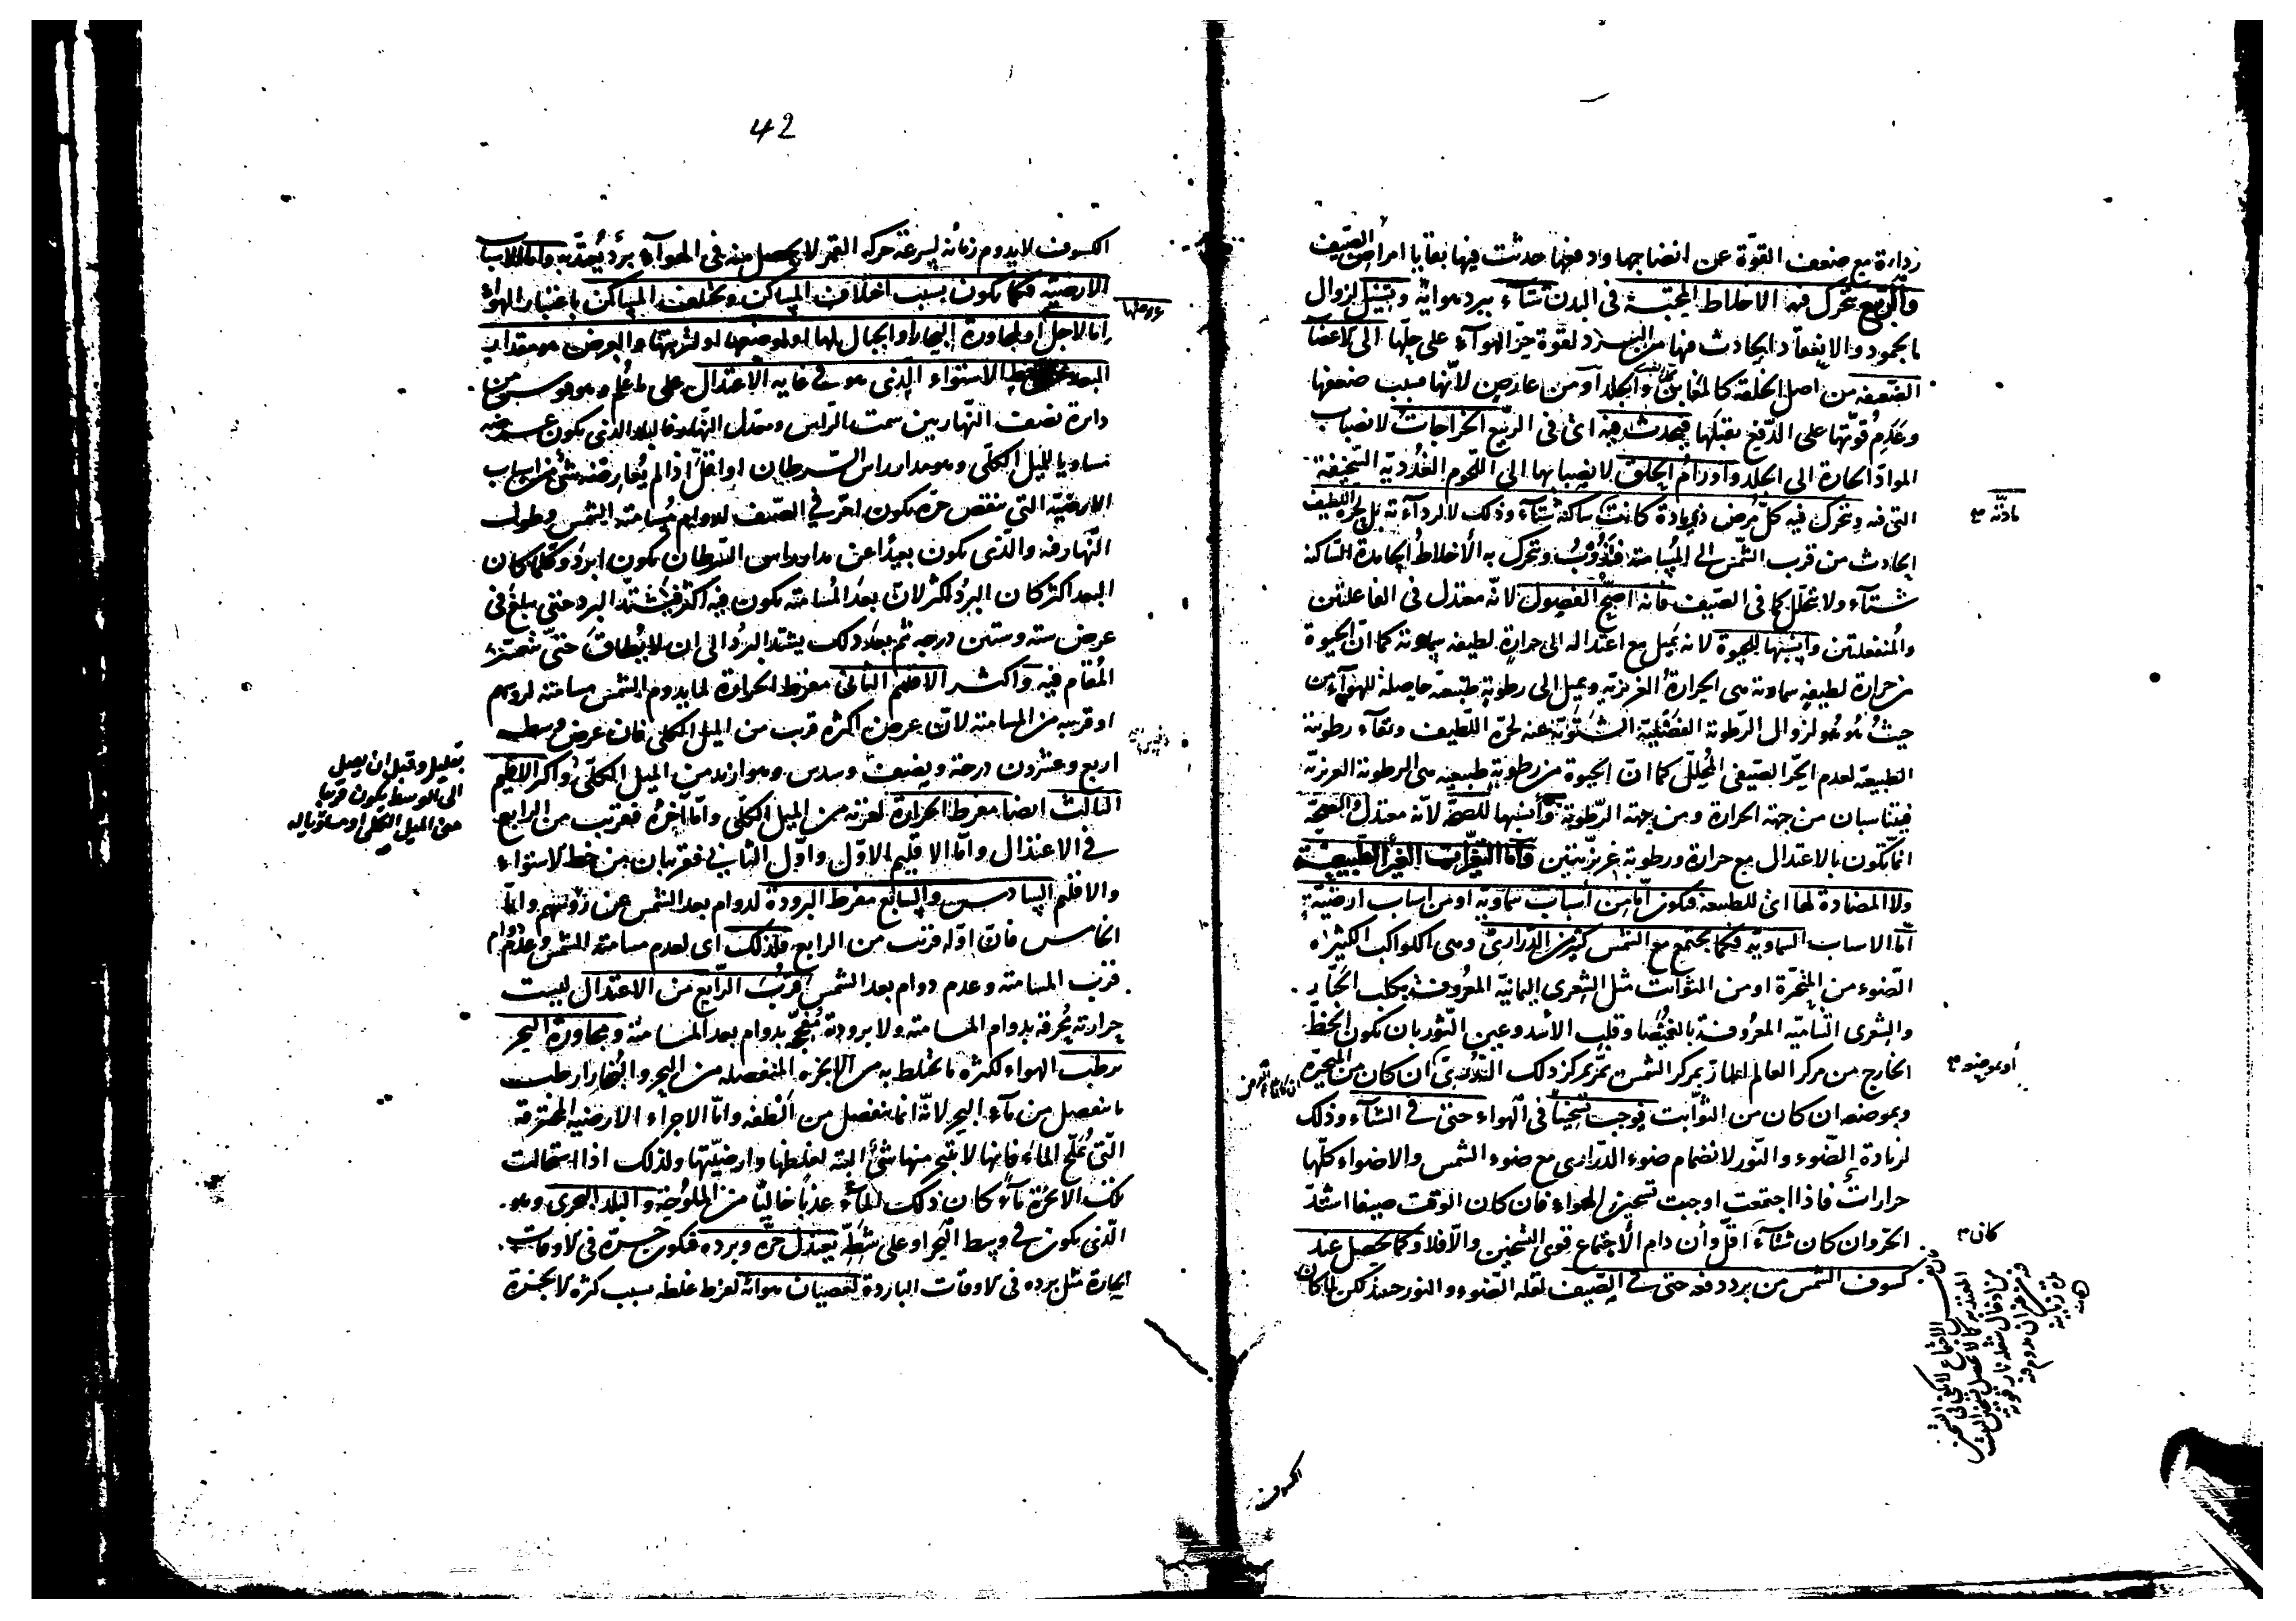 ردارة مع ضعف القوّة عن انضاجها ودفعها حدثت فيها بقايا امراض الصّيف
والربيع تتحرك فيه الاخلاط المحتبسة في البدن شتآء ببرد هوائه وتسيل لزوال
الجمود والانعقاد الحادث فيها من البرد لقوة حرّ الهوآء على حلّها الى الاعضا
الضعيفة من اصل الخلقة كالمغابن والجلد او من عارض لانّها بسبب ضعفها
وعدم قوّتها على الدّفع تقبلها فيحدث فيه اى في الربيع الخراجات لانصباب
الموادّ الحارة الى الجلد واورام الحلق لانصبابها الى اللّحوم الغُدديّة السّخيفة
التى فيه ويتحرك فيه كلّ مرض ذى مادة كانت ساكنة شتآء وذلك لا لردآءته بل لحرّه اللطيف
مادّته
الحادث من قرب الشّمس الى المُسامتة فتذوب وتتحرك به الأخلاط الجامدة السّاكنة
شتآء ولا تتحلل كما في الصّيف فانّه اصحّ الفصول لانّه معتدل في الفاعلتين
والمنفعلتين وانسبها للحيوة لانه يميل مع اعتداله الى حرارة لطيفه سماوية كما انّ الحيوة
من حرارة لطيفة سماوية هى الحرارة الغريزيّة ويميل الى رطوبة طبيعية حاصلة للهوآء من
حيث هو هو لزوال الرّطوبة الفضلية الشتويّة عنه لحرّه اللّطيف وبقآء رطوبته
الطبيعيّة لعدم الحرّ الصّيفى المُحلّل كما انّ الحيوة من رطوبة طبيعية هى الرطوبة الغريزيّة
فيتناسبان من جهة الحرارة ومن جهة الرّطوبة وأنسبها للصحّة لانّه معتدل والصحّة
انّما تكون بالاعتدال مع حرارة ورطوبة غريزيّتين وأمّا التّغيّرات الغير الطّبيعيّة
ولا المضادة لها اى للطبيعة فتكون امّا من أسباب سماوية او من اسباب ارضيّة
امّا الاسباب السّماويّة فكما يجتمع مع الشّمس كثير من الدّرارىّ وهى الكواكب الكثيرة
الضّوء من المتحيّرة او من الثوابت مثل الشعرى اليمانيّة المعروفة بكلب الجبّار
والشعرى الشّاميّة المعروفة بالغُميصا وقلب الأسد وعين الثّور بان يكون الخطّ
الخارج من مركز العالم المارّ بمركز الشّمس يمرّ بمركز ذلك الدّرىّ ان كان من المتحيّرة
أو بموضعه
وبموضعه ان كان من الثّوابت فيوجب تسخينا في الهواء حتّى في الشتآء وذلك
لزيادة الضّوء والنّور لانضمام ضوء الدّرارى مع ضوء الشمس والاضواء كلّها
حرارات فاذا اجتمعت اوجبت تسخين الهواء فان كان الوقت صيفا اشتدّ
الحرّ وان كان شتآءً اقلّ وأن دام الاجتماع قوى التّسخين والّا فلا وكما يحصل عند
كان
كسوف الشمس من برد دفعة حتى في الصّيف لقلة الضّوء والنور حينئذ لكن لما كان
الكسوف
42
الكسوف لا يدوم زمانُه لسرعة حركة القمر لا يحصل منه في الهوآء بردٌ يُعتدّ به وامّا الاسباب
الارضيّة فكما يكون بسبب اختلاف المساكن وتختلف المساكن باعتبار الهواء
عرضها
امّا لاجل او لمجاورة البحار او الجبال لها او لوضعها او لتربتها والعرض هو مقدار
البعد عن خط الاستواء الّذى هو في غاية الاعتدال على ما عُلم وهو قوس من
دائرة نصف النّهار بين سمت الرّاس ومعدّل النّهار فالبلد الذى يكون عرضه
مساويا للميل الكلّى وهو مدار راس السّرطان او اقلّ اذا لم يُعارضه شئ من اسباب
الارضيّة التى تنقص حرّه يكون احرّ في الصّيف لدوام مُسامتة الشّمس وطول
النّهار فيه والّذى يكون بعيدا عن مدار راس السّرطان يكون ابرَد وكلّما كان
البعد اكثر كان البردُ اكثر لانّ بعد المُسامتة يكون فيه اكثر فيشتدّ البرد حتّى يبلغ في
عرض ستة وستين درجة ثم بعد ذلك يشتد البردُ الى ان لا يُطاق حتّى يتعذّر
المُقام فيه واكثر الاقليم الثانى مفرط الحرارة لما يدوم الشمس مسامتة لروسهم
او قريبة من المسامتة لانّ عرض اكثره قريب من الميل الكلى فان عرض وسطه
اربع وعشرون درجة ونصف وسدس وهو ازيد من الميل الكلّى واكثر الاقليم
بقليل وقبل ان يصل
الى الوسط يكون قريبا
من الميل الكلى او مساويا له
الثالث ايضا مفرط الحرارة لقربه من الميل الكلّى وامّا آخره فقريب من الرابع
في الاعتدال وامّا الاقليم الاوّل واوّل الثانى فقريبان من خط الاستواء
والاقليم السادس والسابع مفرط البرودة لدوام بعد الشّمس عن رؤسهم وامّا
الخامس فانّ اوّله قريب من الرابع فلذلك اى لعدم مسامتة الشمس وعدم دوام
قرب المسامتة وعدم دوام بعد الشمس قرُب الرّابع من الاعتدال ليست
حرارته مُحرقة بدوام المسامتة ولا برودته مُفجّجة بدوام بعد المسامتة ومجاورة البحر
يرطب الهواء لكثرة ما يختلط به من الابخرة المنفصلة من البحر والبُخار ارطب
ما ينفصل من مآء البحر لانّه انما ينفصل من ألطفه وامّا الاجزاء الارضية المحترقة
الّتى تُملّح المآء فانها لا يتبخّر منها شئ البتة لغلظها وارضيّتها ولذلك اذا استحالت
تلك الابخرة مآءً كان ذلك المآء عذبا خاليا من الملوحة والبلد البحرى وهو
الّذى يكون في وسط البحر او على شطّه يعتدل حرّه وبرده فيكون حرّه في الاوقات
الحارة مثل برده في الاوقات الباردة لعصيان هوائه لفرط غلظه بسبب كثرة الابخرة